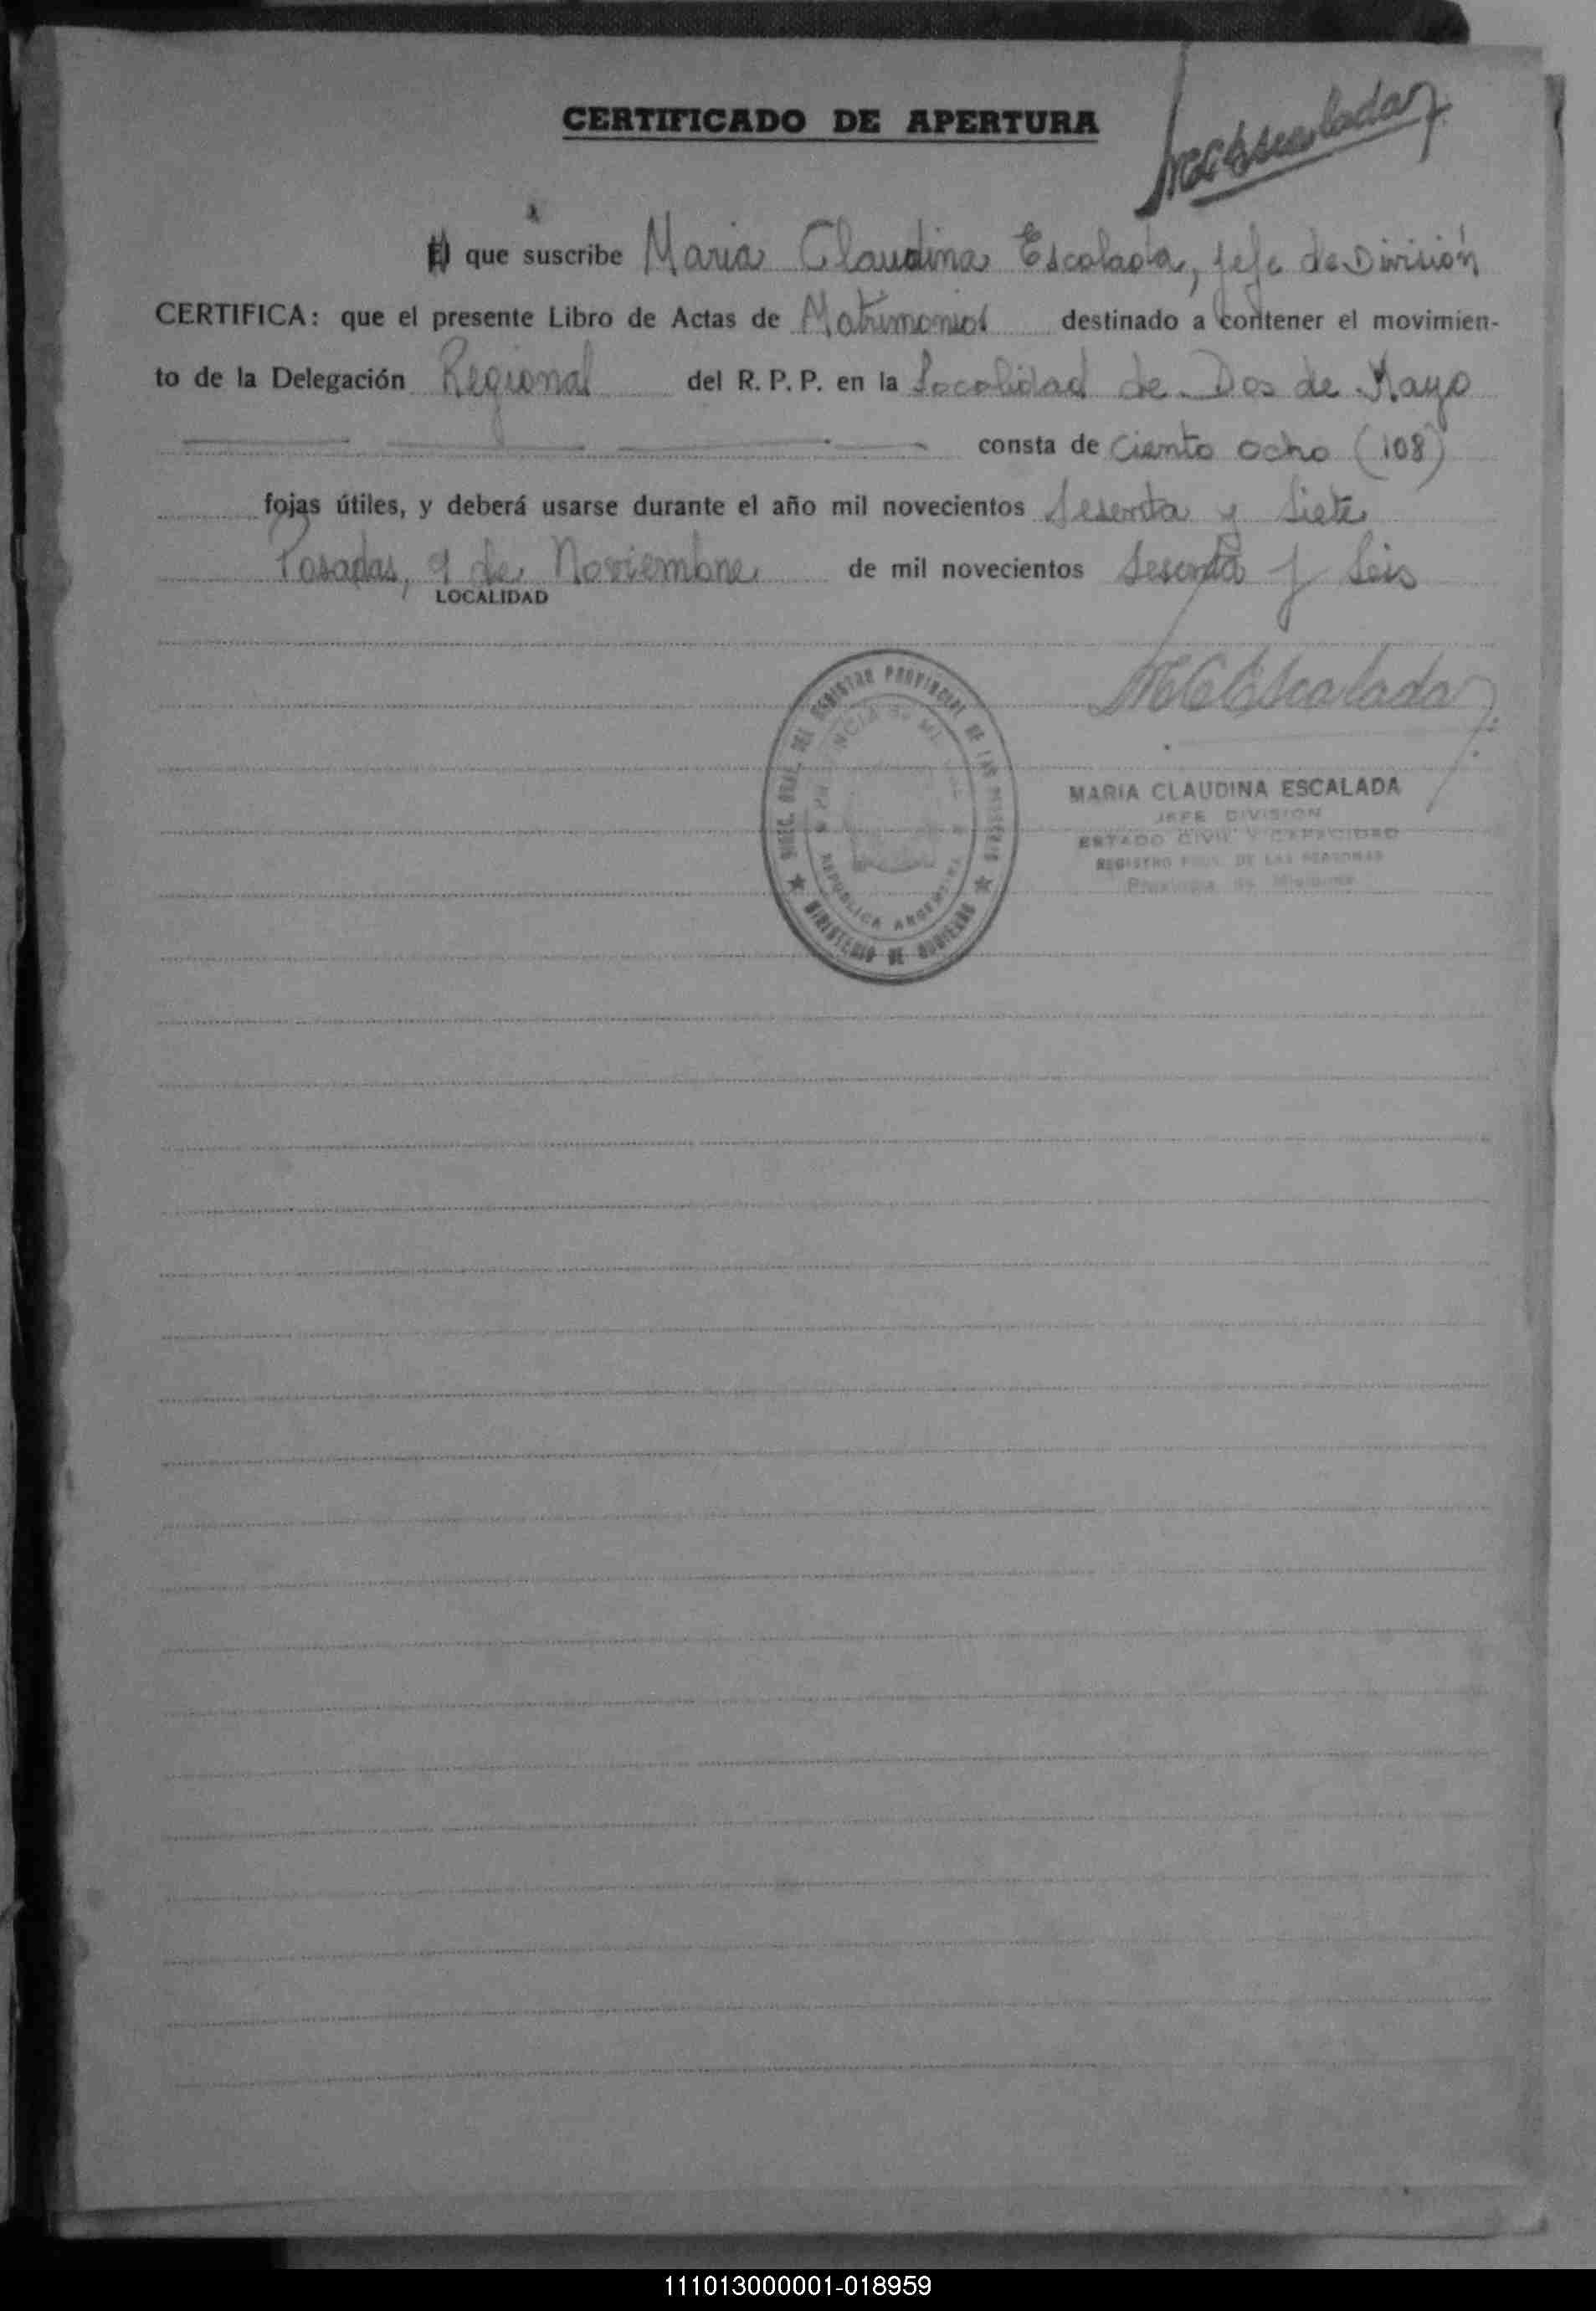 CERTIFICADO DE APERTURA
MCEscalada
El que suscribe Maria Claudina Escalada, Jefe de División
CERTIFICA: que el presente Libro de Actas de Matrimonios destinado a contener el movimien-
to de la Delegación Regional del R. P. P. en la Localidad de Dos de Mayo
consta de Ciento ocho (108)
fojas útiles, y deberá usarse durante el año mil novecientos Sesenta y Siete
Posadas, 9 de Noviembre de mil novecientos Sesenta y Seis
LOCALIDAD
MCEscalada
DIREC. GRAL. DEL REGISTRO PROVINCIAL DE LAS PERSONAS
PROVINCIA DE MISIONES
REPUBLICA ARGENTINA
MINISTERIO DE GOBIERNO
MARIA CLAUDINA ESCALADA
JEFE DIVISION
ESTADO CIVIL Y CAPACIDAD
REGISTRO PROV. DE LAS PERSONAS
Provincia de Misiones
111013000001-018959